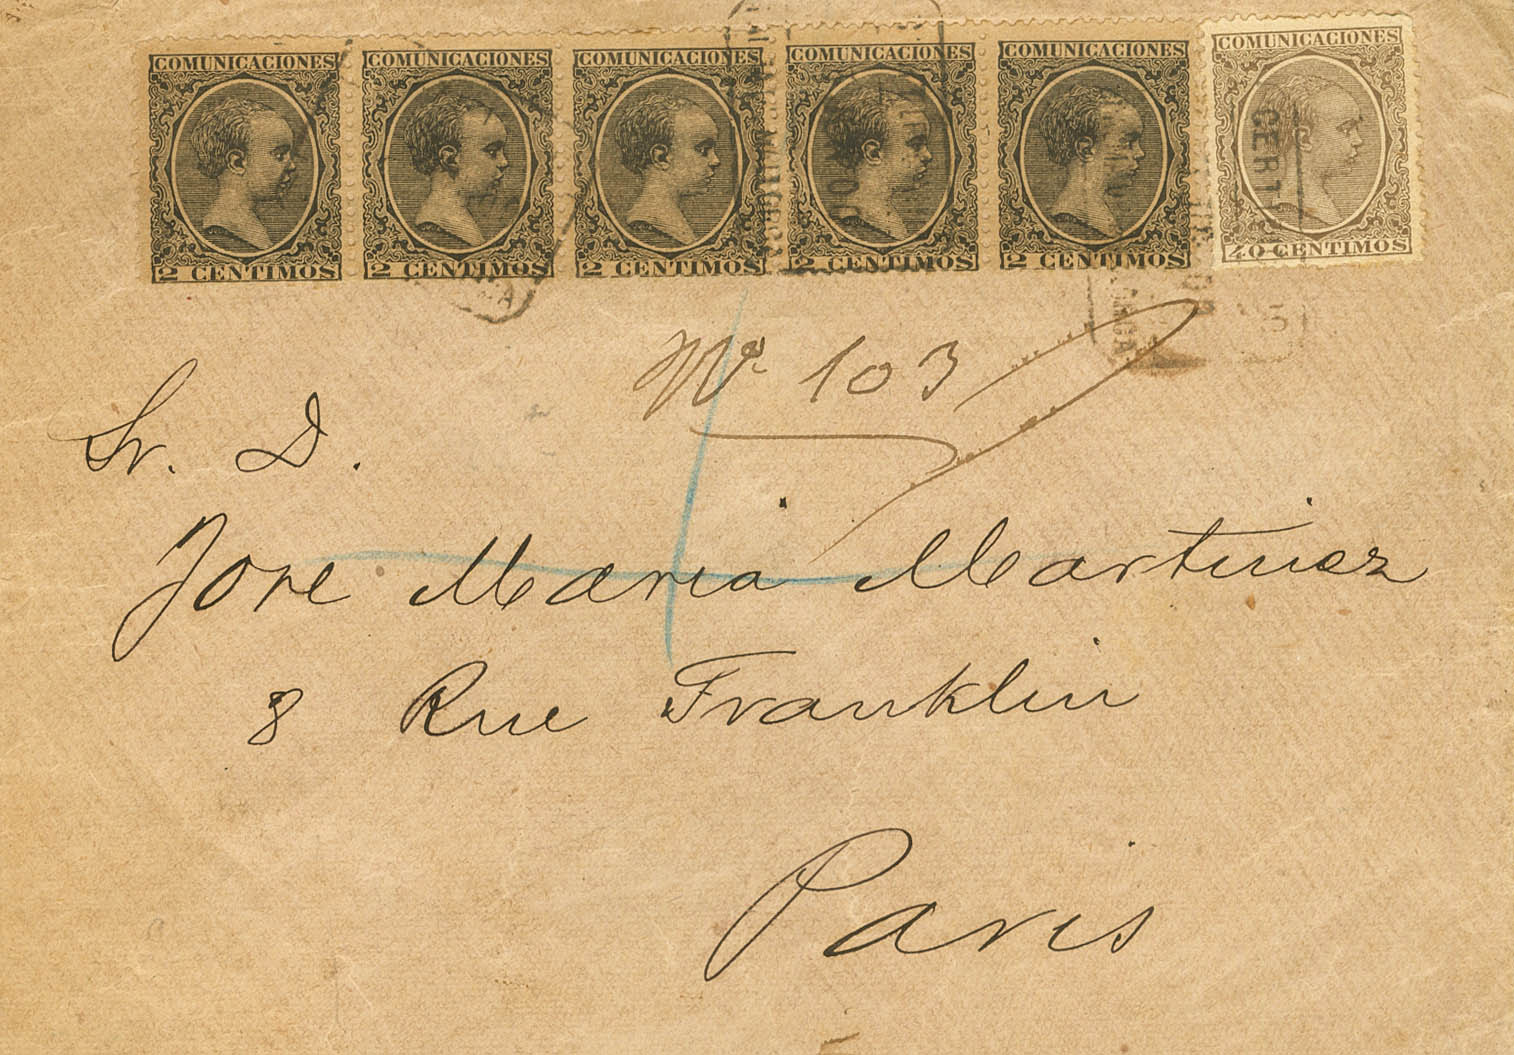 COMUNICACIONES COMUNICACIONES COMUNICACIONES COMUNICACIONES COMUNICACIONES COMUNICACIONES
2 CENTIMOS 2 CENTIMOS 2 CENTIMOS 2 CENTIMOS 2 CENTIMOS 40 CENTIMOS
CERTI
Nº 103
Sr. D.
Jose Maria Martinez
8 Rue Franklin
Paris